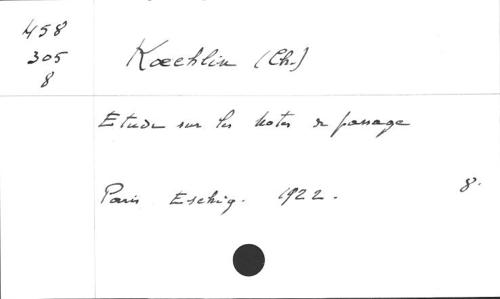 458
305
8
Kœchlin (Ch.)
Etude sur les notes de passage
Paris Eschig. 1922. 8.